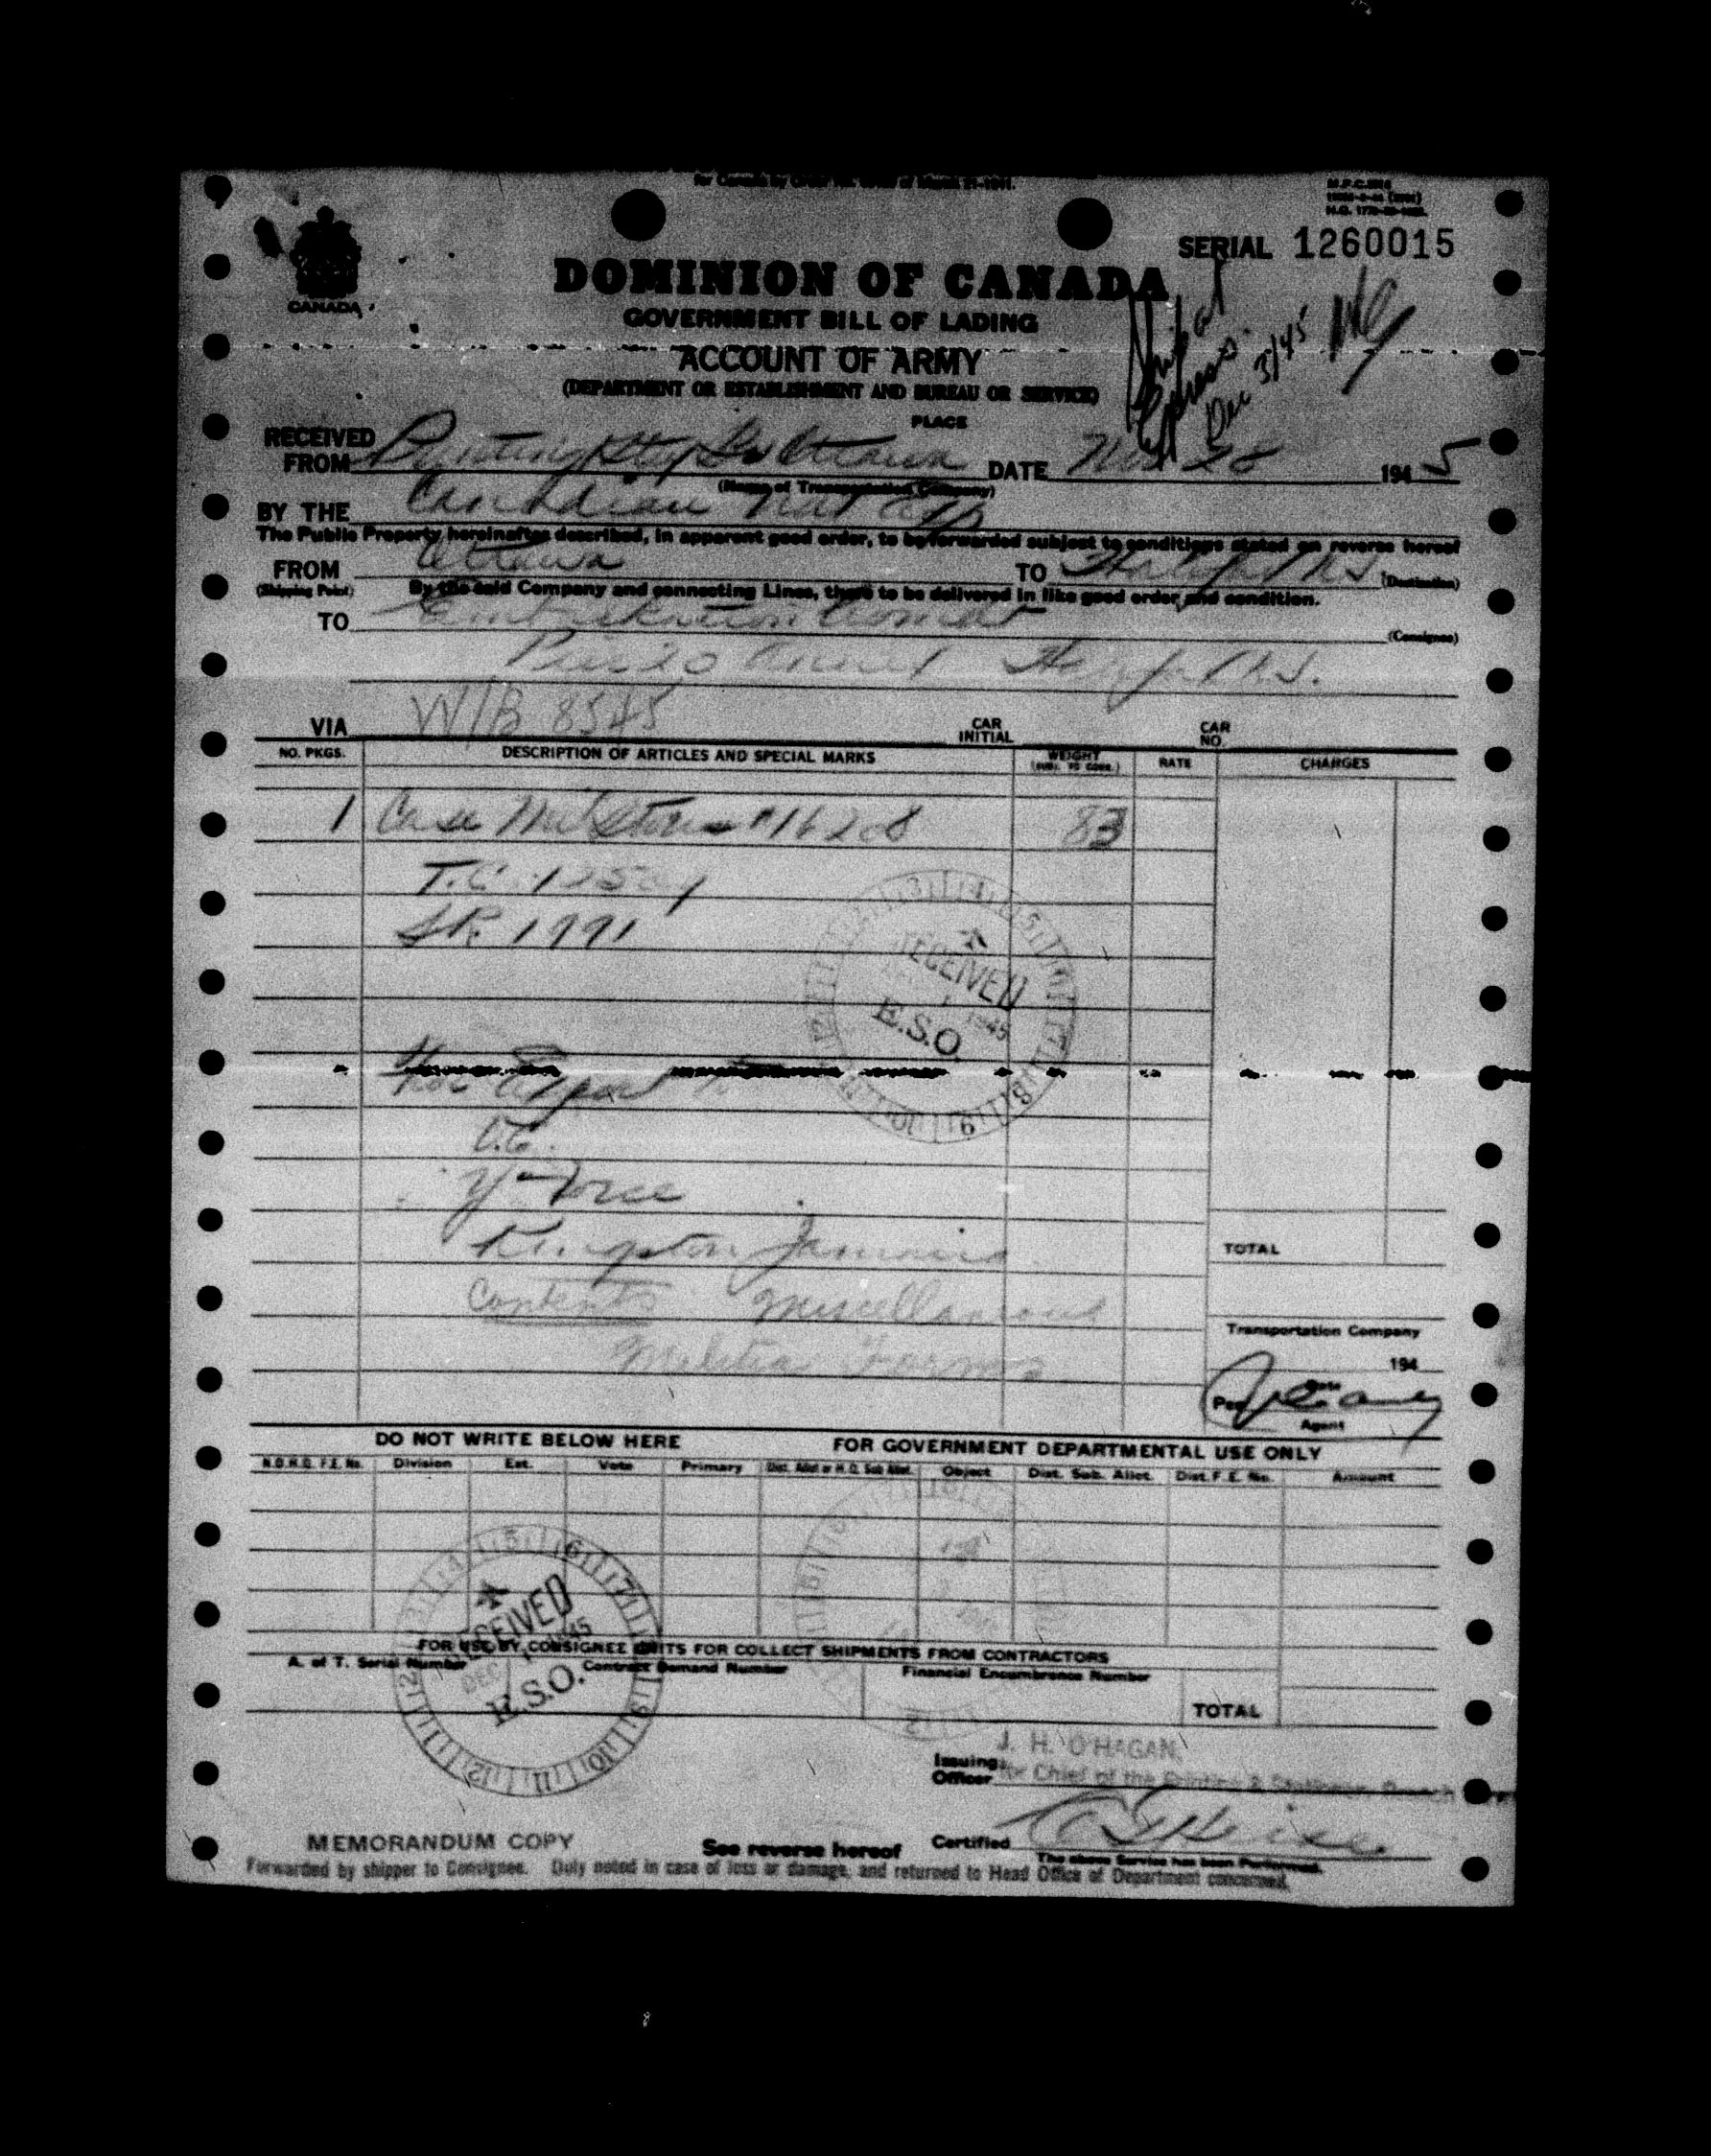 for Canada by Order
SERIAL 1260015
CANADA
DOMINION OF CANADA
GOVERNMENT BILL OF LADING
ACCOUNT OF ARMY
(DEPARTMENT OR ESTABLISHMENT AND BUREAU OR SERVICE)
Express.
Dec 3/45
PLACE
RECEIVED FROM Printing & Sty Ottawa DATE Nov 28 1945
(Name of Transportation Company)
BY THE Canadian Nat Exp
The Public Property hereinafter described, in apparent good order, to be forwarded subject to conditions stated on reverse hereof
FROM Ottawa TO Halifax N.S. (Destination)
(Shipping Point) By the said Company and connecting Lines, there to be delivered in like good order and condition.
TO Embarkation Comdt (Consignee)
Pier 20 Annex Halifax N.S.
VIA W/B 8545 CAR INITIAL CAR NO.
NO. PKGS. DESCRIPTION OF ARTICLES AND SPECIAL MARKS WEIGHT (SUBJ. TO CORR.) RATE CHARGES
1 Case Mil Stores #16208 83
T.C.
RECEIVED
1945
E.S.O.
For Export to
O.C.
"Y" Force
Kingston Jamaica
TOTAL
Contents Miscellaneous
Militia Forms
Transportation Company
194
Date
Per
Agent
DO NOT WRITE BELOW HERE FOR GOVERNMENT DEPARTMENTAL USE ONLY
N.D.H.Q. F.E. No. Division Est. Vote Primary Dist. Allot or H.Q. Sub Allot. Object Dist. Sub. Allot. Dist. F.E. No. Amount
RECEIVED
DEC 1 1945
E.S.O.
FOR USE BY CONSIGNEE UNITS FOR COLLECT SHIPMENTS FROM CONTRACTORS
A. of T. Serial Number Contract Demand Number Financial Encumbrance Number
TOTAL
J. H. O'HAGAN,
Issuing Officer for Chief of the Printing & Stationery Branch
Certified
The above Service has been Performed.
MEMORANDUM COPY See reverse hereof
Forwarded by shipper to Consignee. Duly noted in case of loss or damage, and returned to Head Office of Department concerned.